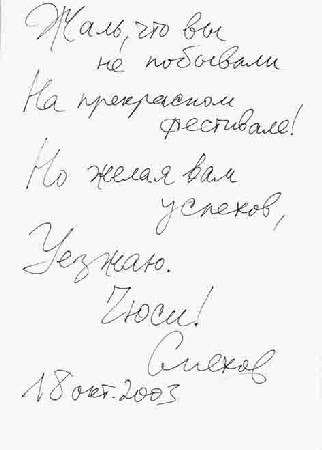 Жаль, что вы
не побывали
На прекрасном
фестивале!
Но желая вам
успехов,
Уезжаю.
Чюси!
18 окт. 2003